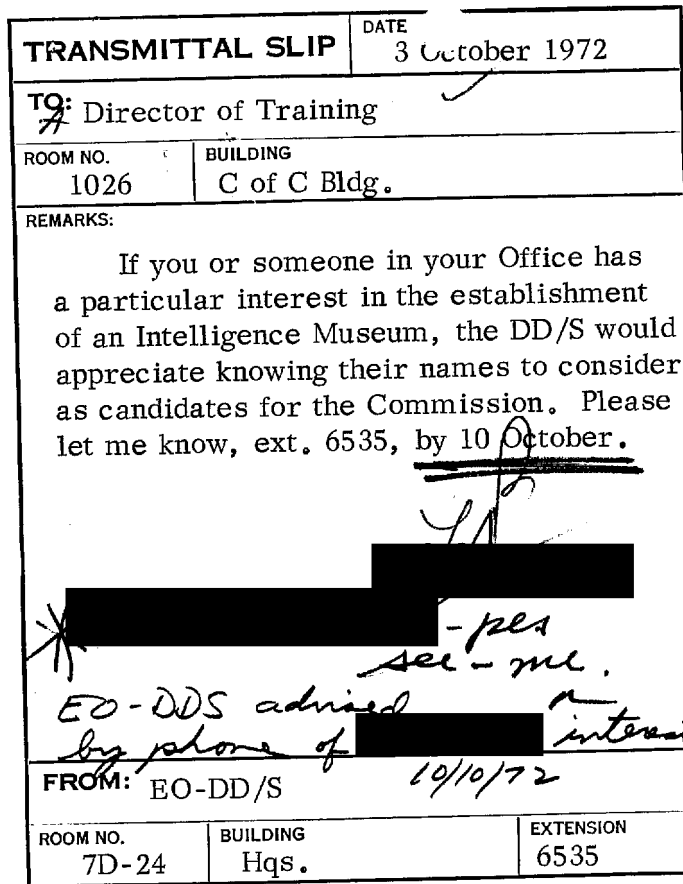 TRANSMITTAL SLIP
DATE
3 October 1972
TO: Director of Training
ROOM NO.
1026
BUILDING
C of C Bldg.
REMARKS:
If you or someone in your Office has
a particular interest in the establishment
of an Intelligence Museum, the DD/S would
appreciate knowing their names to consider
as candidates for the Commission. Please
let me know, ext. 6535, by 10 October.
- pls
see - me.
EO-DDS advised
by phone of interest
10/10/72
FROM: EO-DD/S
ROOM NO.
7D-24
BUILDING
Hqs.
EXTENSION
6535